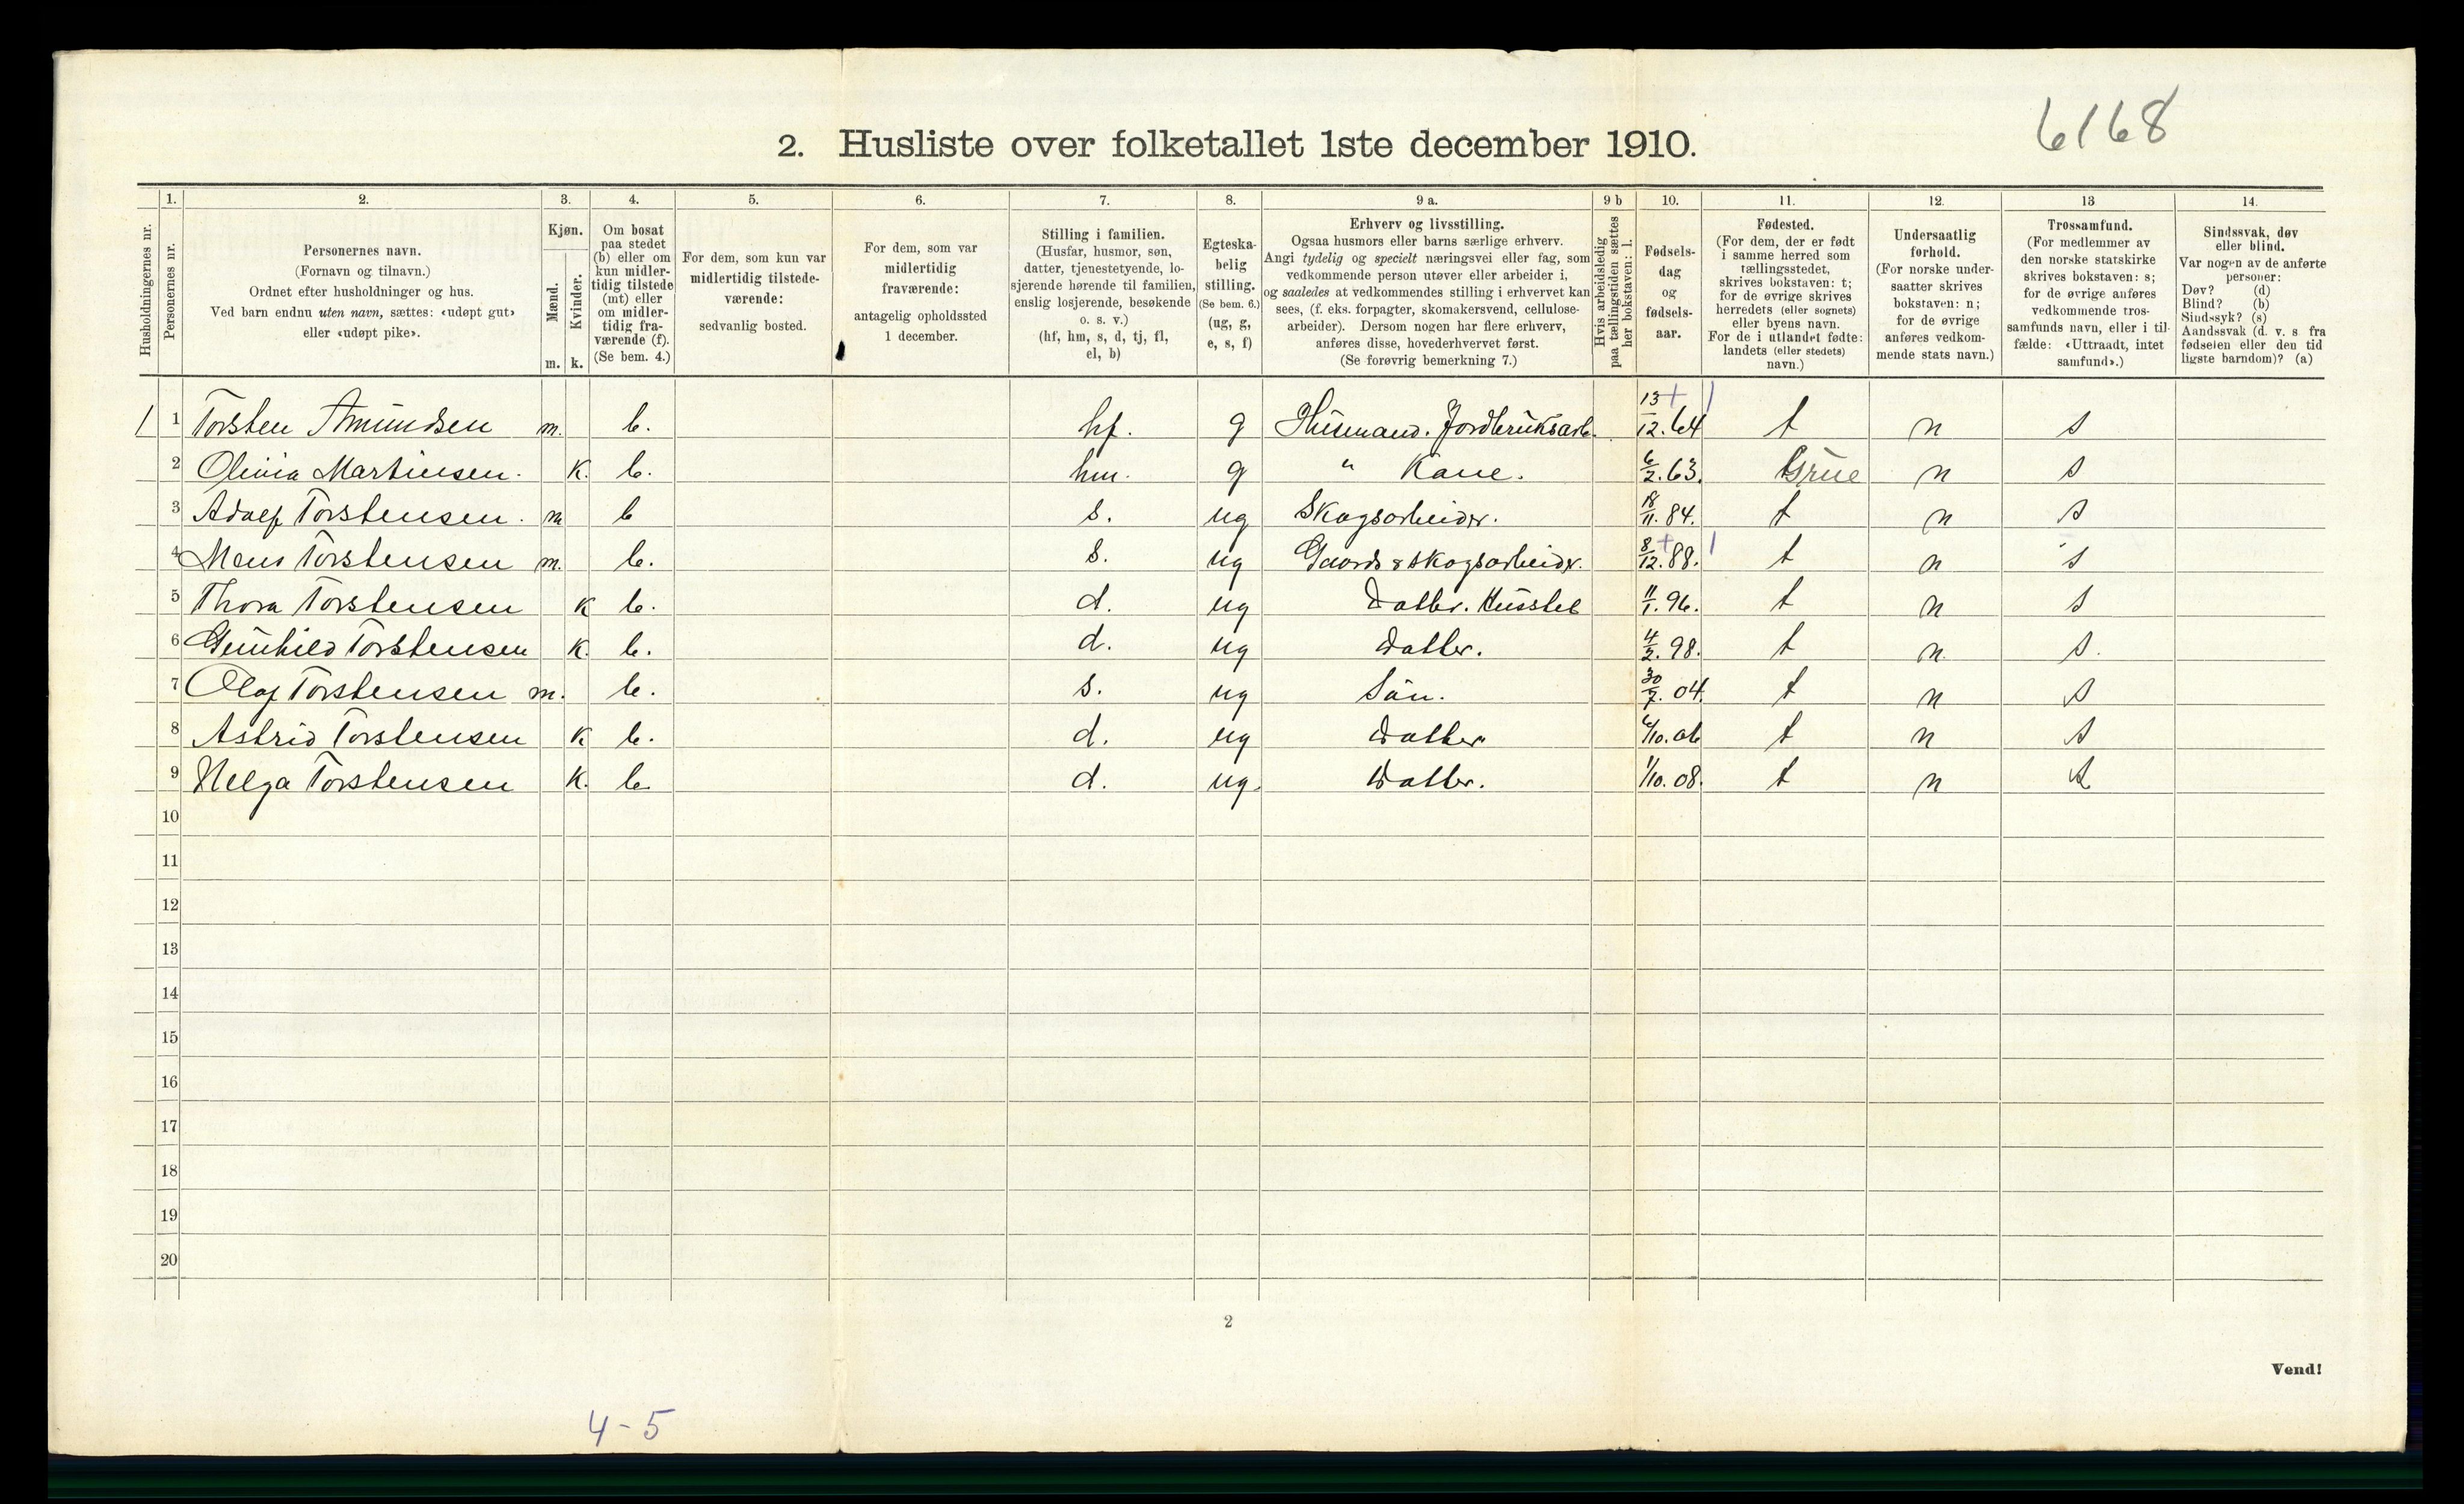 6168
2. Husliste over folketallet 1ste december 1910.
Husholdningernes nr.
1.
Personernes nr.
2.
Personernes navn.
(Fornavn og tilnavn.)
Ordnet efter husholdninger og hus.
Ved barn endnu uten navn, sættes: «udøpt gut»
eller «udøpt pike».
3.
Kjøn.
Mænd.
Kvinder.
m. k.
4.
Om bosat
paa stedet
(b) eller om
kun midler-
tidig tilstede
(mt) eller
om midler-
tidig fra-
værende (f).
(Se bem. 4.)
5.
For dem, som kun var
midlertidig tilstede-
værende:
sedvanlig bosted.
6.
For dem, som var
midlertidig
fraværende:
antagelig opholdssted
1 december.
7.
Stilling i familien.
(Husfar, husmor, søn,
datter, tjenestetyende, lo-
sjerende hørende til familien,
enslig losjerende, besøkende
o. s. v.)
(hf, hm, s, d, tj, fl,
el, b)
8.
Egteska-
belig
stilling.
(Se bem. 6.)
(ug, g,
e, s, f)
9 a.
Erhverv og livsstilling.
Ogsaa husmors eller barns særlige erhverv.
Angi tydelig og specielt næringsvei eller fag, som
vedkommende person utøver eller arbeider i,
og saaledes at vedkommendes stilling i erhvervet kan
sees, (f. eks. forpagter, skomakersvend, cellulose-
arbeider). Dersom nogen har flere erhverv,
anføres disse, hovederhvervet først.
(Se forøvrig bemerkning 7.)
9 b
Hvis arbeidsledig
paa tællingstiden sættes
her bokstaven: l.
10.
Fødsels-
dag
og
fødsels-
aar.
11.
Fødested.
(For dem, der er født
i samme herred som
tællingsstedet,
skrives bokstaven: t;
for de øvrige skrives
herredets (eller sognets)
eller byens navn.
For de i utlandet fødte:
landets (eller stedets)
navn.)
12.
Undersaatlig
forhold.
(For norske under-
saatter skrives
bokstaven: n;
for de øvrige
anføres vedkom-
mende stats navn.)
13
Trossamfund.
(For medlemmer av
den norske statskirke
skrives bokstaven: s;
for de øvrige anføres
vedkommende tros-
samfunds navn, eller i til-
fælde: «Uttraadt, intet
samfund».)
14.
Sindssvak, døv
eller blind.
Var nogen av de anførte
personer:
Døv? (d)
Blind? (b)
Sindssyk? (s)
Aandssvak (d. v. s. fra
fødselen eller den tid
ligste barndom)? (a)
1 1 Torsten Amundsen m. b. hf. g Husmand. Jordbruksarb. 13/12.64 t n s
2 Olivia Martinsen. K. b. hm. g " Kone. 6/2.63. Grue n s
3 Adolf Torstensen. m b s. ug Skogsarbeider. 18/11.84. t n s
4 Mons Torstensen m. b. s. ug Gaards & skogsarbeider. 8/12.88. t n s
5 Thora Torstensen K b. d. ug Datter. Husstel 11/1.96. t n s
6 Gunhild Torstensen K. b. d. ug Datter. 4/2.98. t n. s.
7 Olaf Torstensen m. b. s. ug Sön. 30/7.04. t n s
8 Astrid Torstensen K b. d. ug Datter 6/10.06 t n s
9 Helga Torstensen K. b. d. ug. Datter. 1/10.08. t n s
10
11
12
13
14
15
16
17
18
19
20
2
Vend!
4-5